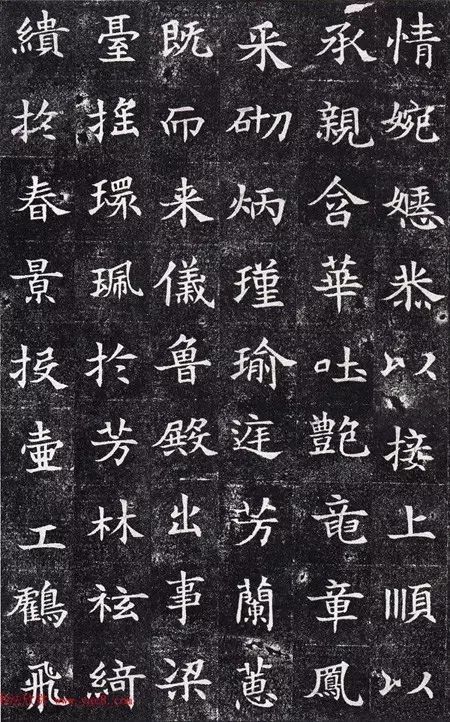 情婉嫕恭以接上順以
承親含華吐艷竜章鳳
采砌炳瑾瑜庭芳蘭蕙
既而来儀魯殿出事梁
臺揺環珮於芳林袨綺
繢於春景投壺工鶴飛